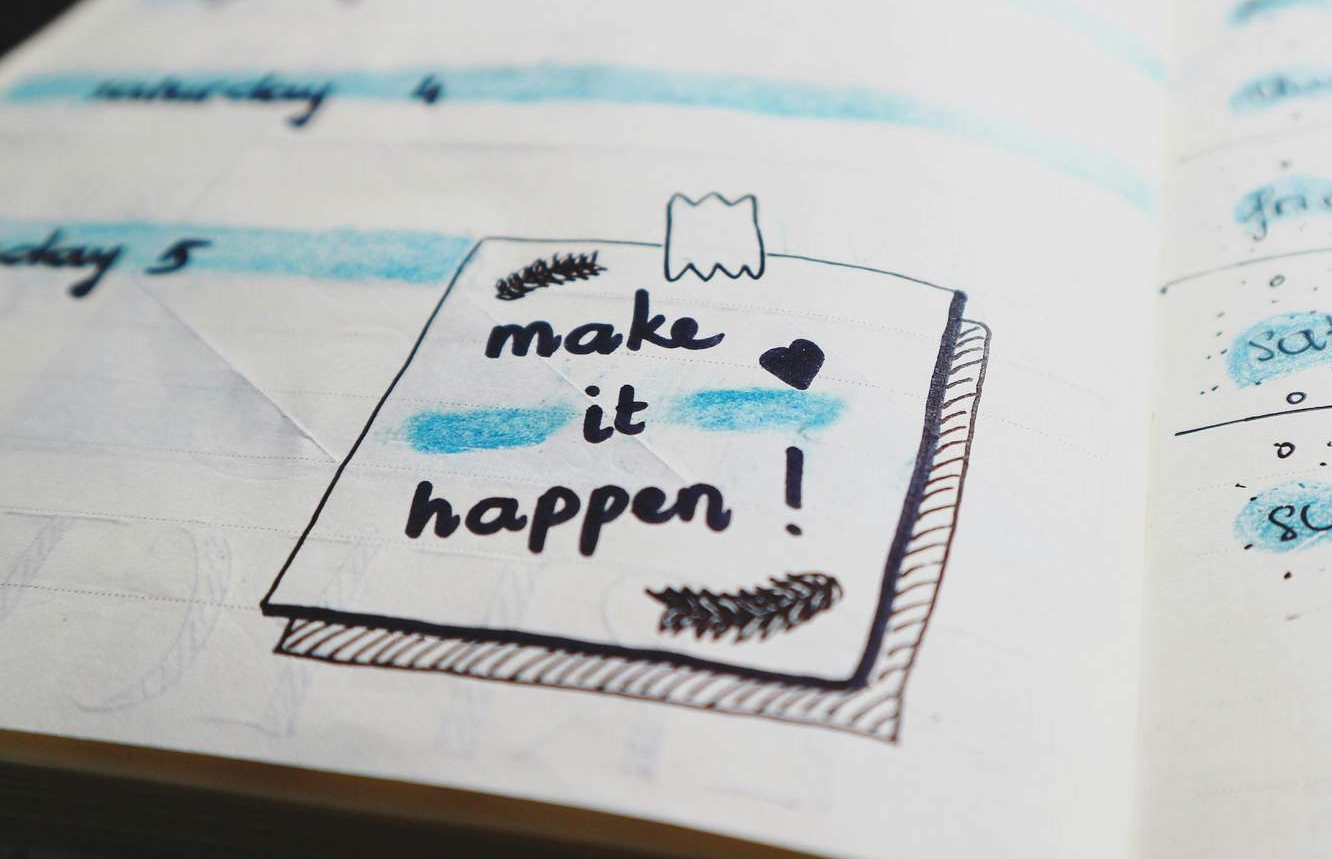 saturday 4
day 5
make
it
happen !
sat
su